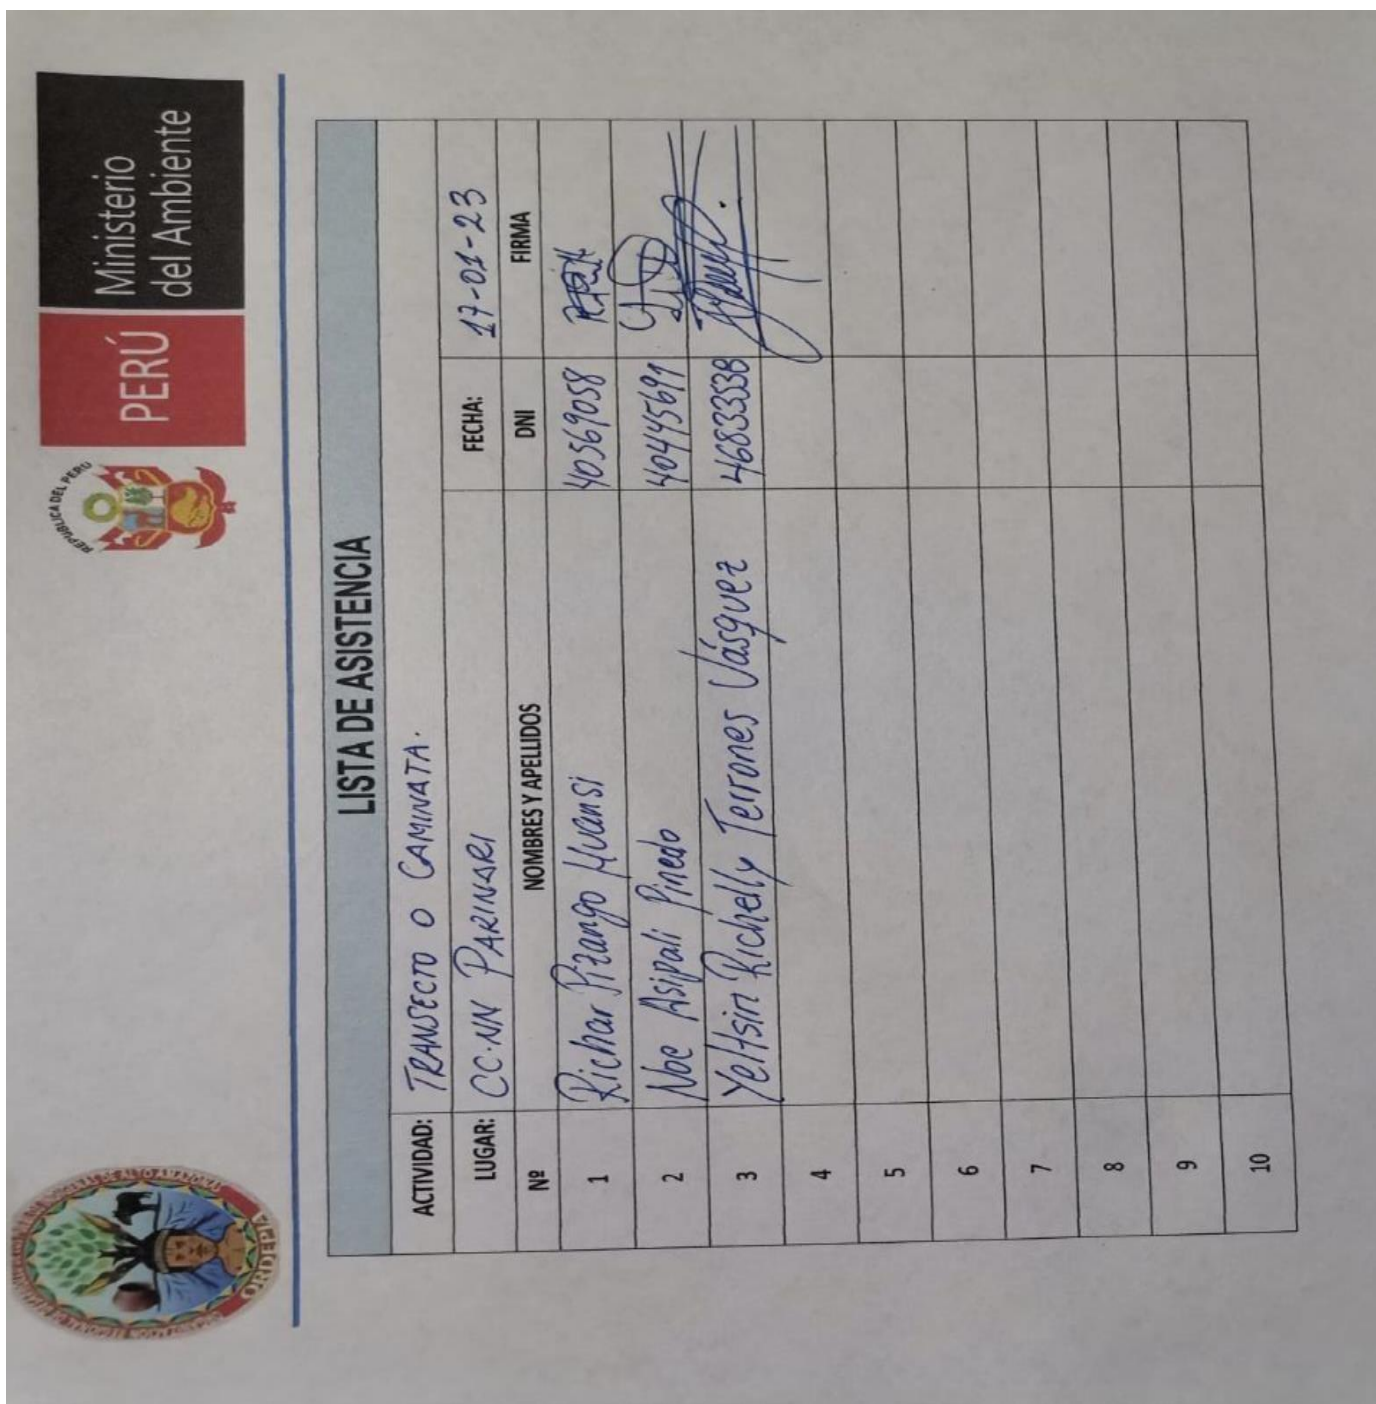 ORDEPIAA
REPUBLICA DEL PERU
PERÚ
Ministerio
del Ambiente
LISTA DE ASISTENCIA
ACTIVIDAD: TRANSECTO O CAMINATA.
LUGAR: CC.NN PARINARI FECHA: 17-01-23
Nº NOMBRES Y APELLIDOS DNI FIRMA
1 Richar Pizango Huansi 40569058
2 Noe Asipali Pinedo 40445691
3 Yeltsin Richelly Terrones Vásquez 46833538
4
5
6
7
8
9
10